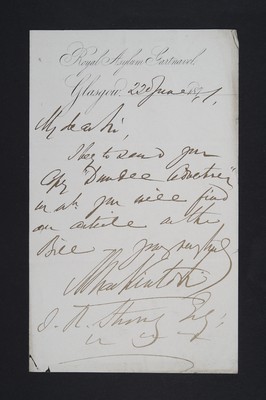 Royal Asylum Gartnavel
Glasgow, 22d June 187
My dear Sir,
I beg to send you
Copy "Dundee Advertiser"
in wh. you will find
an article on the
Bill — yours very truly
Mackintosh
J. R. Strong Esq: